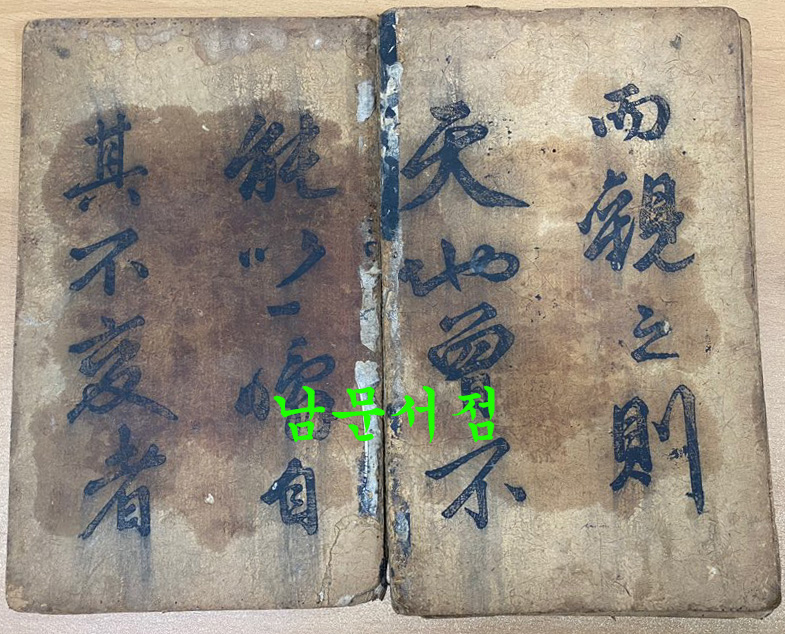 而觀之則
天地曾不
能以一瞬自
其不變者
남문서점